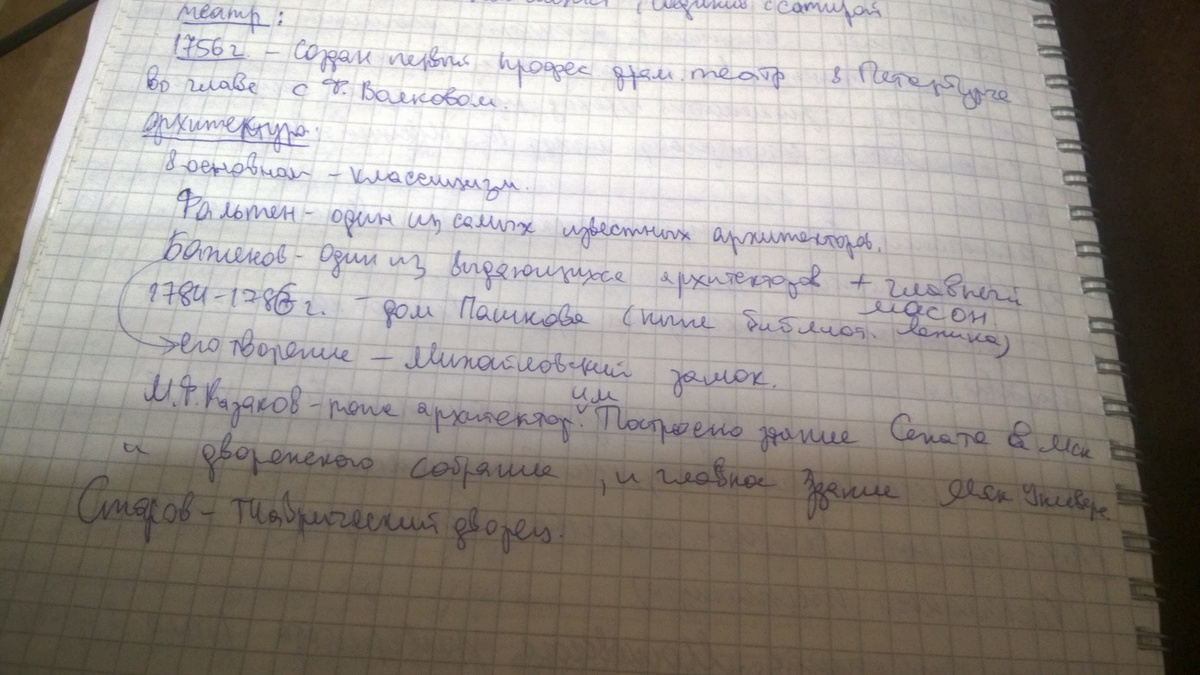 с сатирой
театр:
1756 г. – создан первый професс драм. театр в Петербурге
во главе с Ф. Волковом.
архитектура.
В основном – классицизм.
Фальтен – один из самых известных архитекторов.
Баженов – один из выдающихся архитекторов + главный
масон.
1784-1786 г. – дом Пашкова (ныне библиот. Ленина)
его творение – Михайловский замок.
им
М.Ф. Казаков – тоже архитектор. Построено здание Сената в Мск
и дворянского собрание, и главное здание Мск Универс.
Старов – Таврический дворец.